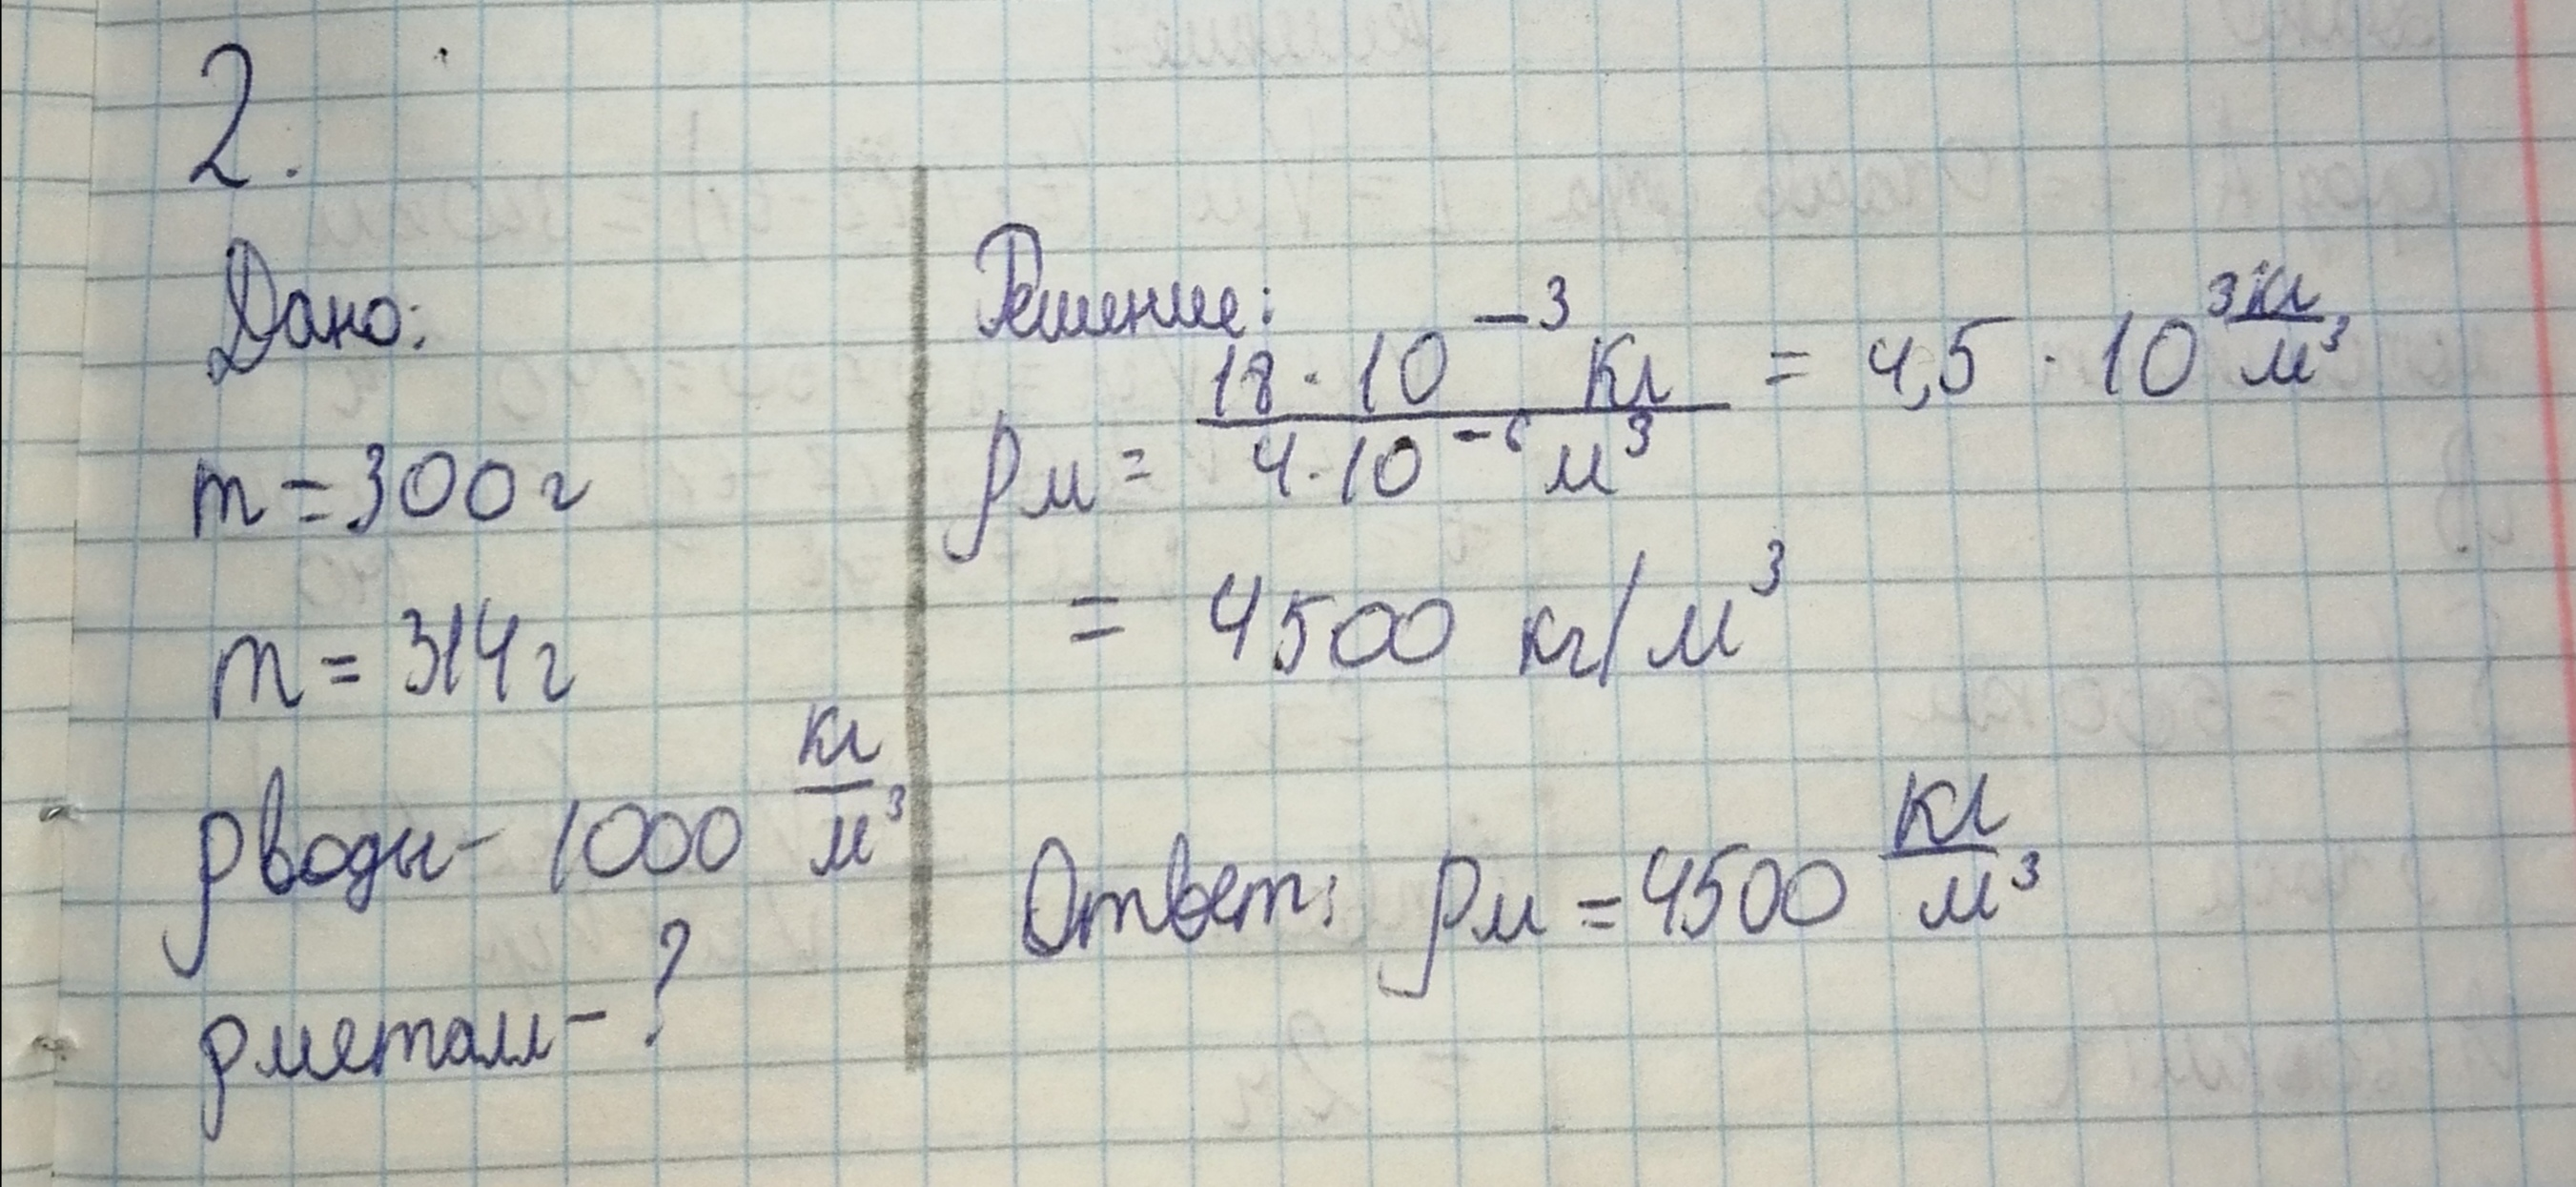 2.
Дано:
m = 300 г
m = 314 г
ρ воды – 1000 кг/м³
ρ металл – ?
Решение:
ρм = 18 · 10⁻³ кг / 4 · 10⁻⁶ м³ = 4,5 · 10³ кг/м³
= 4500 кг/м³
Ответ: ρм = 4500 кг/м³